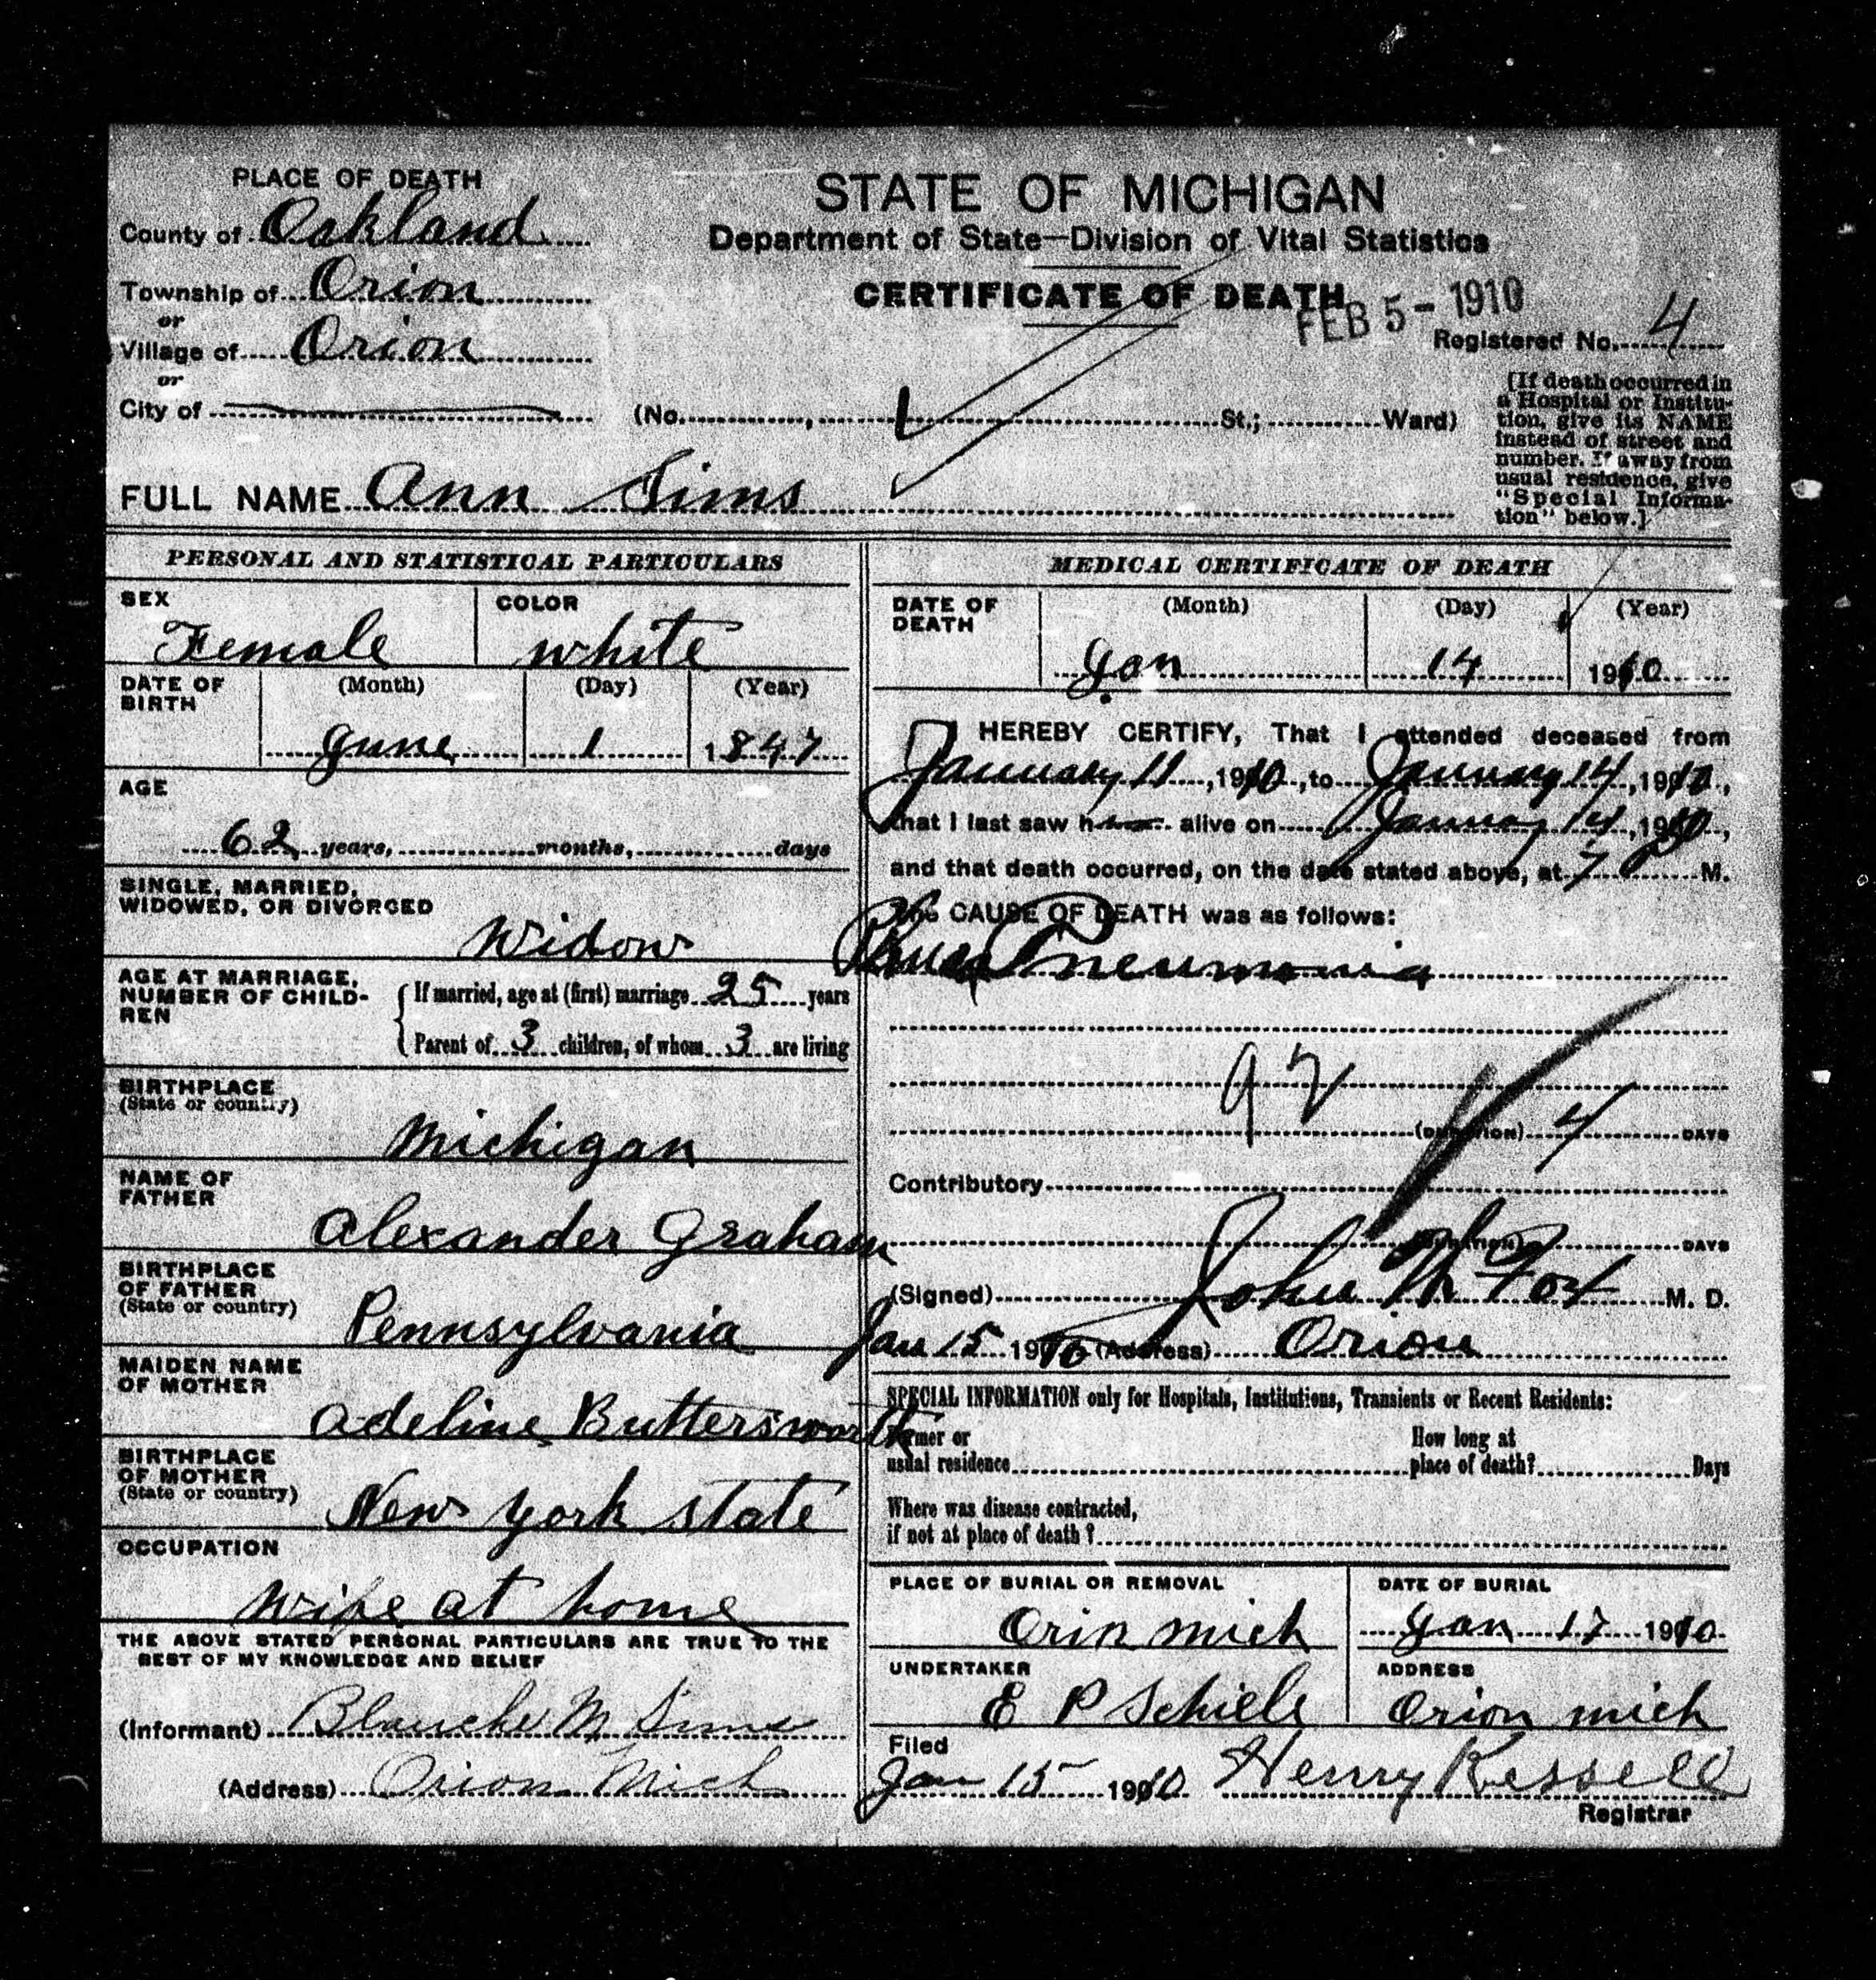 PLACE OF DEATH
County of Oakland
Township of Orion
or
Village of Orion
or
City of
STATE OF MICHIGAN
Department of State—Division of Vital Statistics
CERTIFICATE OF DEATH
FEB 5 - 1910
Registered No. 4
(No. , St.; Ward)
[If death occurred in
a Hospital or Institu-
tion, give its NAME
instead of street and
number. If away from
usual residence, give
"Special Informa-
tion" below.]
FULL NAME Ann Sims
PERSONAL AND STATISTICAL PARTICULARS
SEX
Female
COLOR
white
DATE OF
BIRTH
(Month) (Day) (Year)
June 1 1847
AGE
62 years, months, days
SINGLE, MARRIED,
WIDOWED, OR DIVORCED
Widow
AGE AT MARRIAGE,
NUMBER OF CHILD-
REN
If married, age at (first) marriage 25 years
Parent of 3 children, of whom 3 are living
BIRTHPLACE
(State or country)
Michigan
NAME OF
FATHER
Alexander Graham
BIRTHPLACE
OF FATHER
(State or country)
Pennsylvania
MAIDEN NAME
OF MOTHER
Adeline Buttersworth
BIRTHPLACE
OF MOTHER
(State or country)
New York state
OCCUPATION
wife at home
THE ABOVE STATED PERSONAL PARTICULARS ARE TRUE TO THE
BEST OF MY KNOWLEDGE AND BELIEF
(Informant) Blanche M Sims
(Address) Orion Mich
MEDICAL CERTIFICATE OF DEATH
DATE OF
DEATH
(Month) (Day) (Year)
Jan 14 1910
I HEREBY CERTIFY, That I attended deceased from
January 11, 1910, to January 14, 1910,
that I last saw h alive on January 14, 1910,
and that death occurred, on the date stated above, at 7 M.
The CAUSE OF DEATH was as follows:
Pneumonia
92
(DURATION) 4 DAYS
Contributory
(DURATION) DAYS
(Signed) John M Fox M. D.
Jan 15 1910 (Address) Orion
SPECIAL INFORMATION only for Hospitals, Institutions, Transients or Recent Residents:
Former or
usual residence
How long at
place of death? Days
Where was disease contracted,
if not at place of death?
PLACE OF BURIAL OR REMOVAL
Orin mich
DATE OF BURIAL
Jan 17 1910
UNDERTAKER
E P Schiele
ADDRESS
Orion mich
Filed
Jan 15 1910 Henry Kessell
Registrar